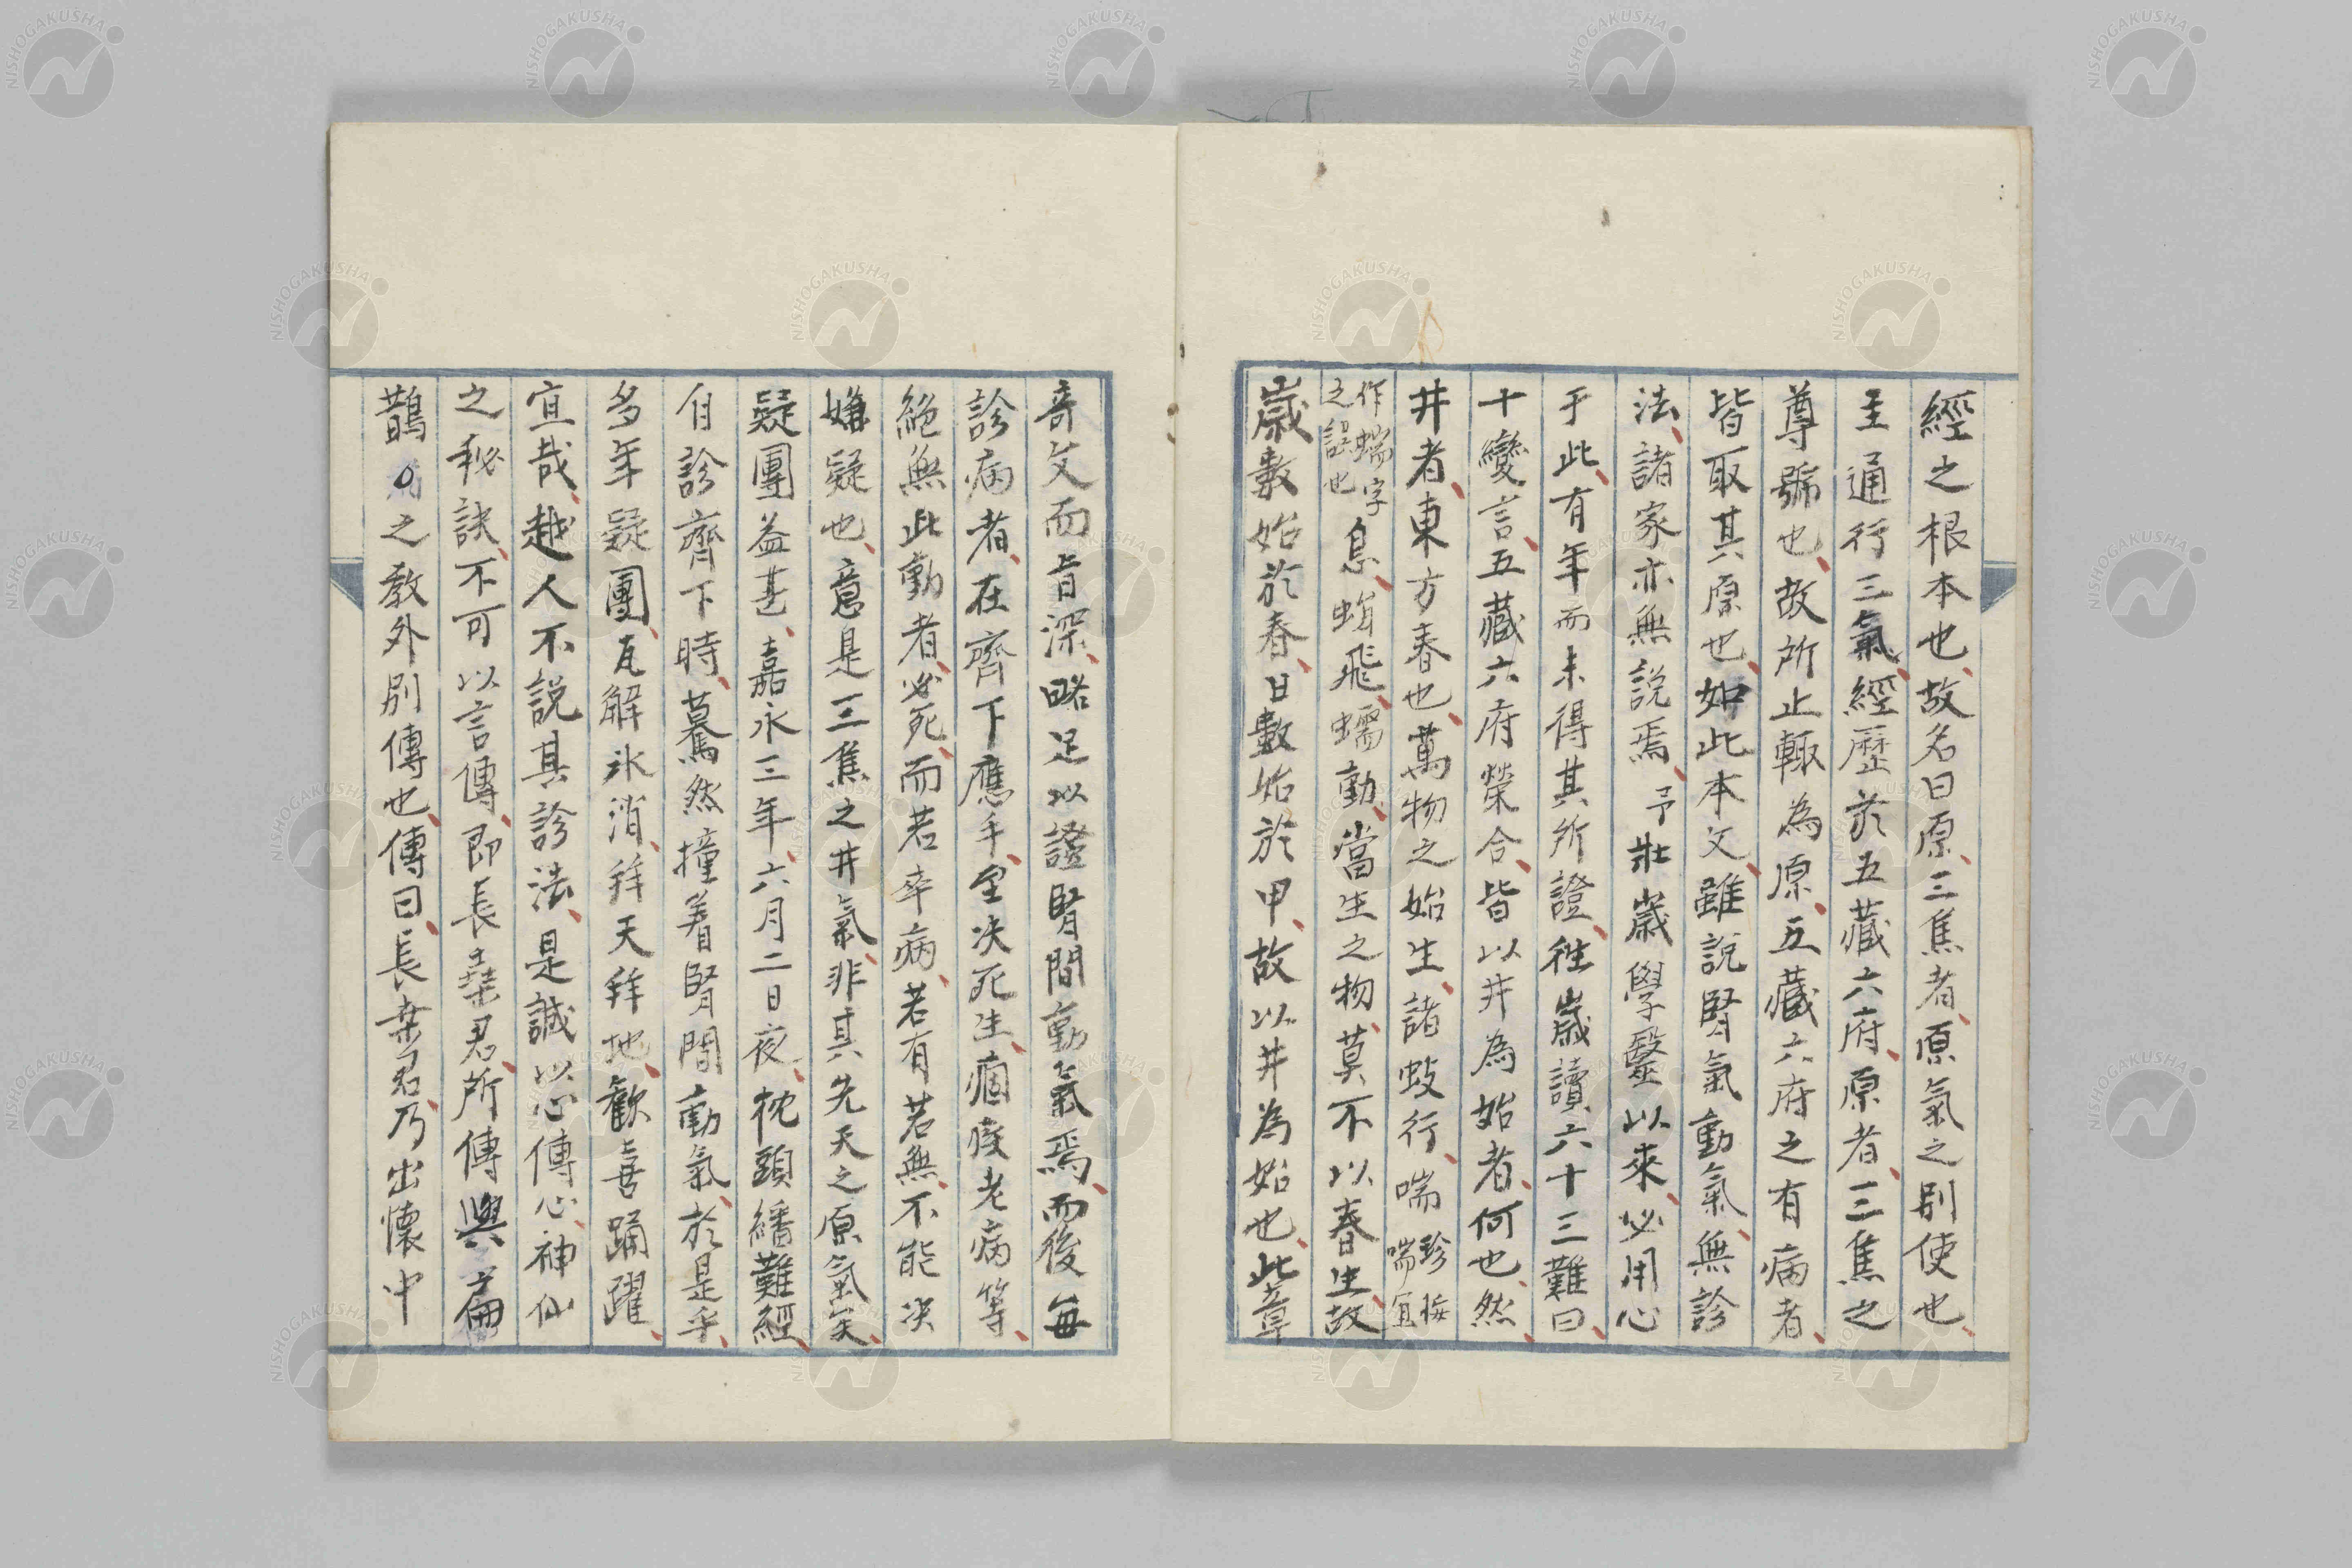 經之根本也、故名曰原、三焦者、原氣之別使也、
主通行三氣、經歷於五藏六府、原者、三焦之
尊號也、故所止輙為原、五藏六府之有病者、
皆取其原也、如此本文、雖說腎氣動氣、無診
法、諸家亦無說焉、予壯歲學醫以來、必用心
于此、有年而未得其所證、往歲讀六十三難曰、
十變言、五藏六府榮合、皆以井為始者、何也、然、
井者、東方春也、萬物之始生、諸蚑行、喘珍按喘宜
作蝡字之誤也息、蜎飛、蠕動、當生之物、莫不以春生、故
歲數始於春、日數始於甲、故以井為始也、此章
奇文而旨深、略足以證腎間動氣焉、而後每
診病者、在齊下應手、全决死生、痼疾老病等、
絕無此動者、必死、而若卒病、若有若無、不能決
嫌疑也、意是三焦之井氣、非其先天之原氣矣、
疑團益甚、嘉永三年、六月二日夜、枕頭繙難經、
自診齊下時、驀然撞着腎間動氣、於是乎、
多年疑團、瓦解氷消、拜天拜地、歡喜踊躍、
宜哉、越人不說其診法、是誠以心傳心、神仙
之秘訣、不可以言傳、即長桑君、所傳與扁
鵲之敎外別傳也、傳曰、長桑君乃出懷中
NISHOGAKUSHA